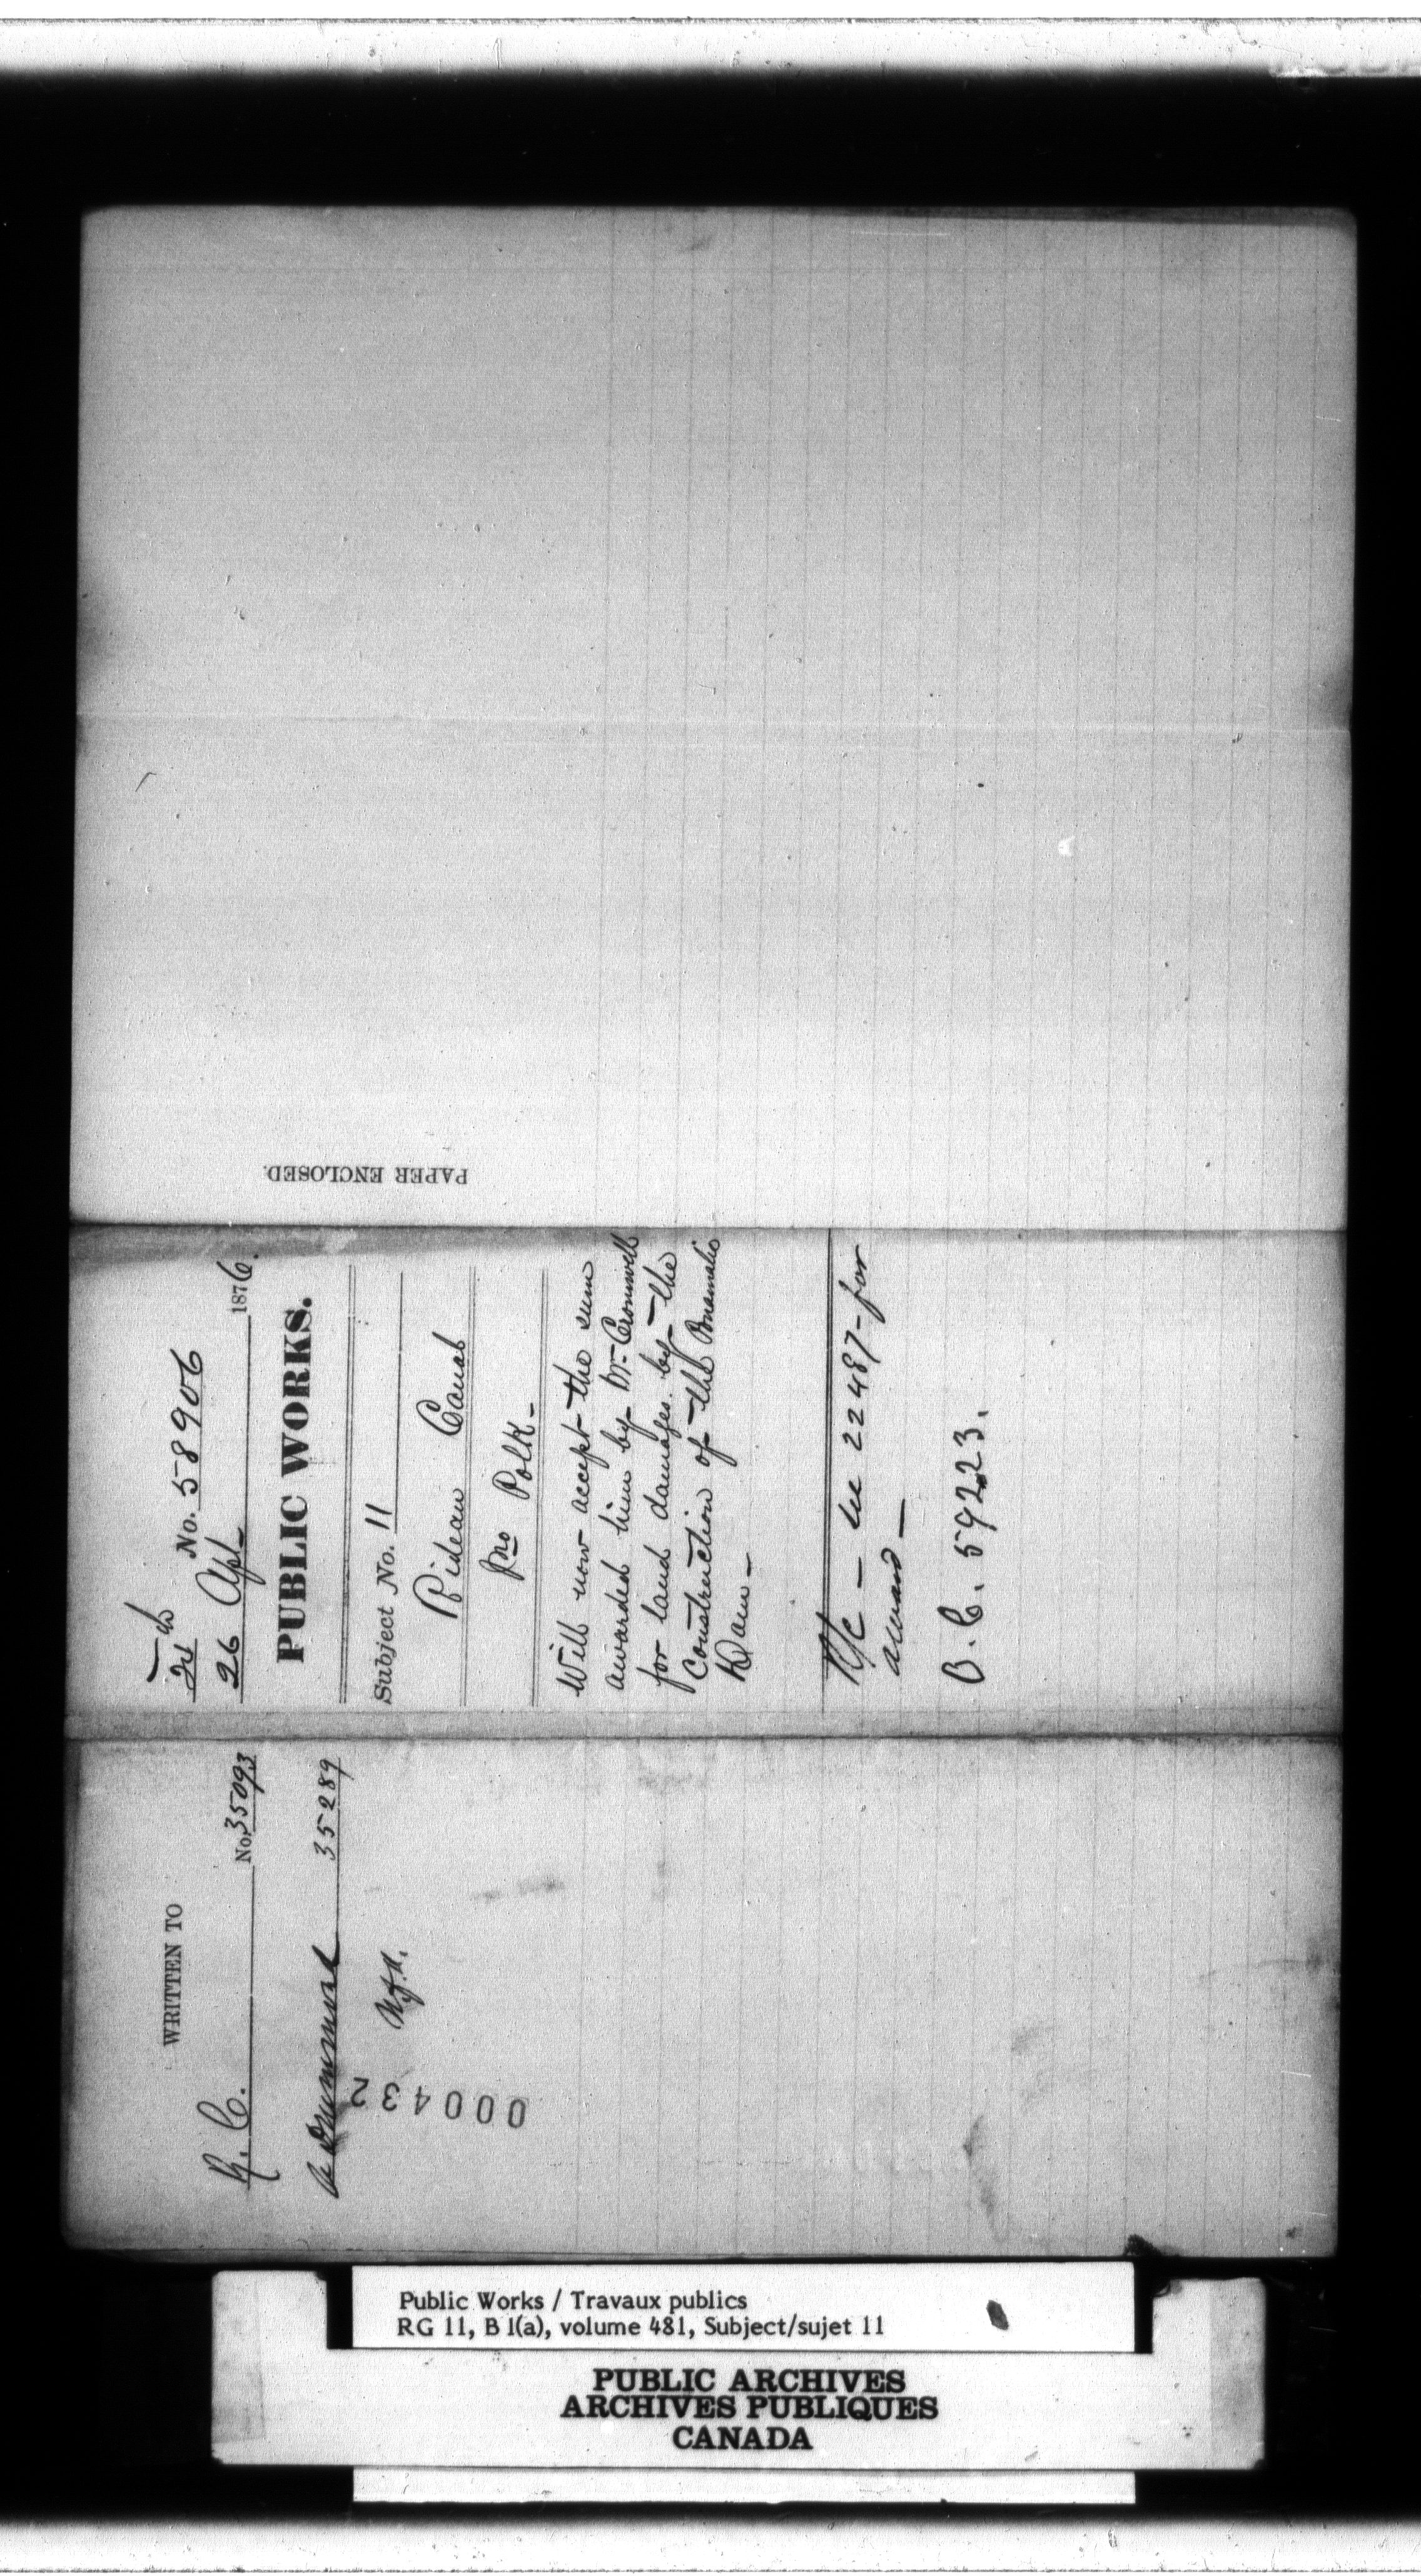 PAPER ENCLOSED.
No. 58906
26 Apl 1876.
PUBLIC WORKS.
Subject No. 11
Rideau Canal
Jno Polk -
Will now accept the sum
awarded him by Mr Cromwell
for land damages by the
Construction of the Bnamalie
Dam -
R/c - see 22487 - for
award -
B.C. 59223.
WRITTEN TO
R. C. No. 35093
A Drummond 35289
000432
Public Works / Travaux publics
RG 11, B 1(a), volume 481, Subject/sujet 11
PUBLIC ARCHIVES
ARCHIVES PUBLIQUES
CANADA